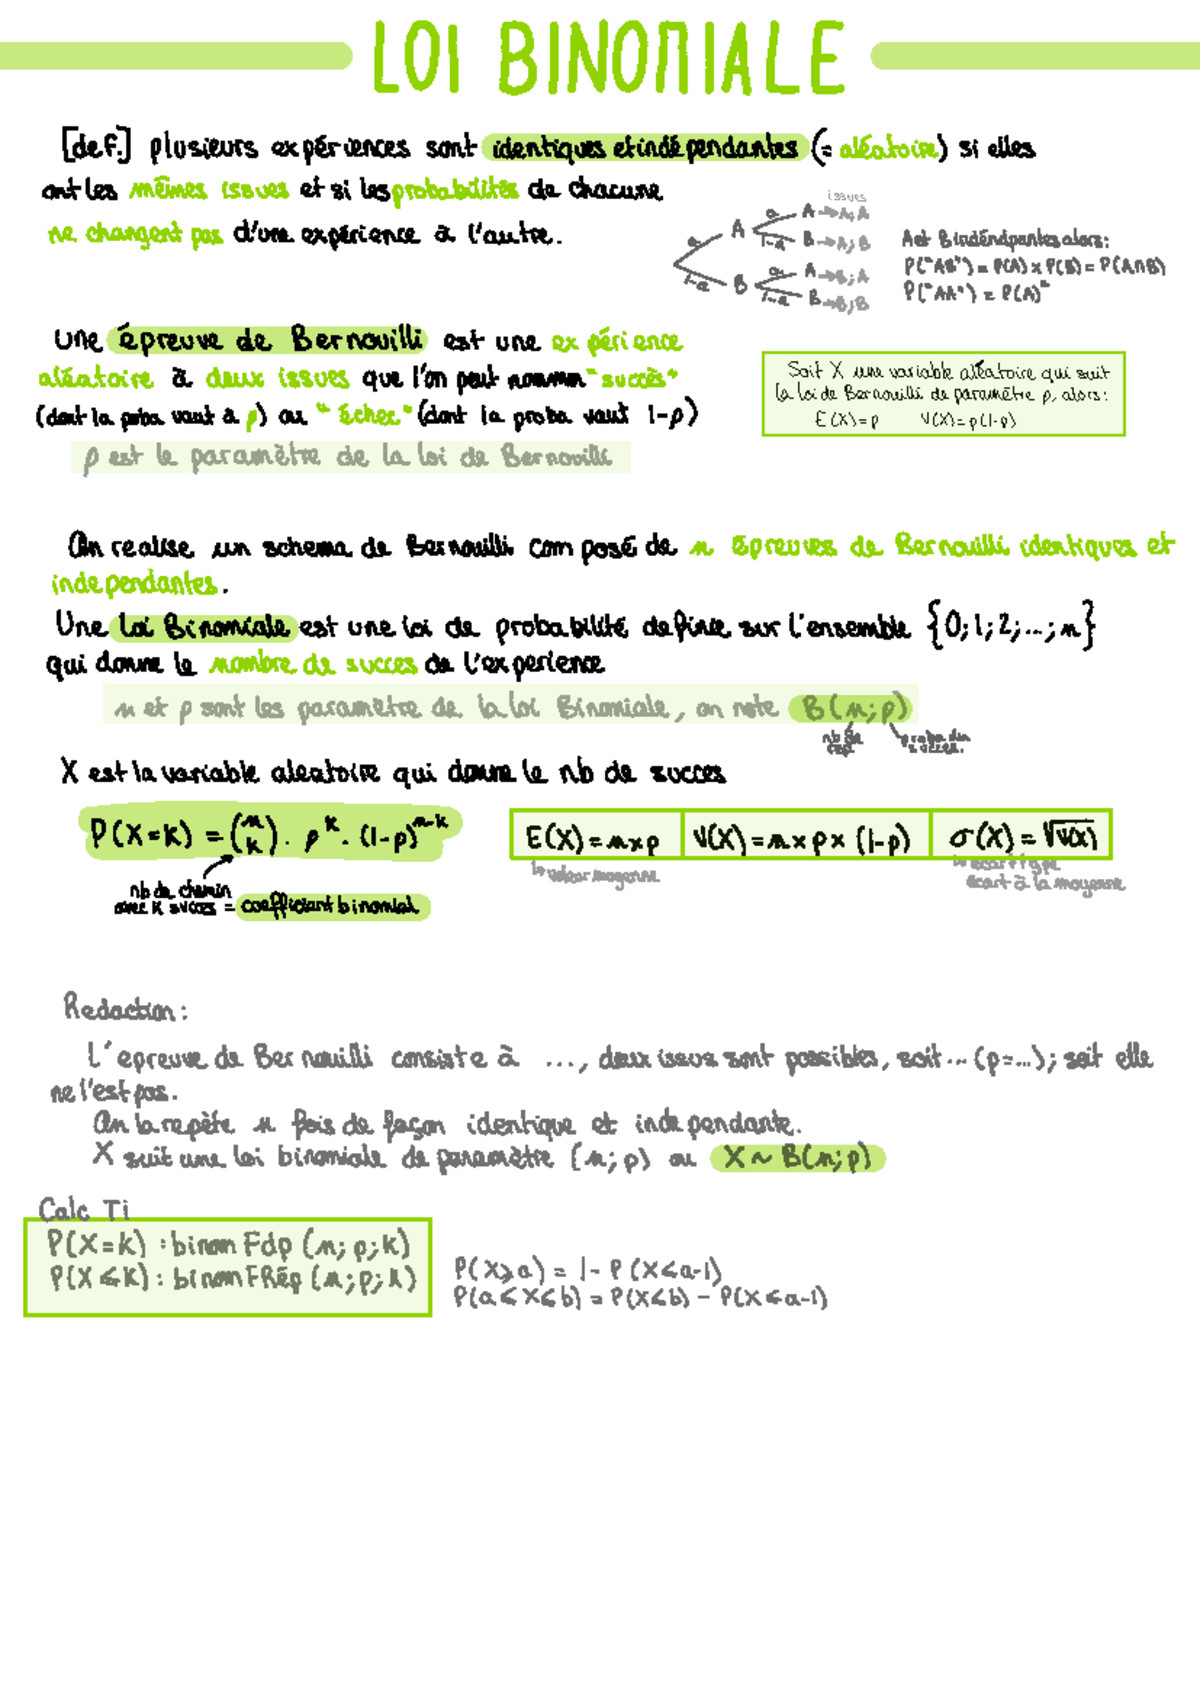 LOI BINOMIALE
[def.] plusieurs expériences sont identiques et indépendantes (= aléatoire) si elles
ont les mêmes issues et si les probabilités de chacune
ne changent pas d'une expérience à l'autre.
issues
a A a A → A;A
1-a B → A;B
1-a B a A → B;A
1-a B → B;B
A et B indéndpantes alors:
P("AB") = P(A) x P(B) = P(A∩B)
P("AA") = P(A)²
Une épreuve de Bernouilli est une expérience
aléatoire à deux issues que l'on peut "succès"
(dont la proba vaut a p) ou "échec" (dont la proba vaut 1-p)
p est le paramètre de la loi de Bernouilli
Soit X une variable aléatoire qui suit
la loi de Bernouilli de paramètre p, alors:
E(X)=p V(X)=p(1-p)
On realise un schema de Bernouilli composé de n épreuves de Bernouilli identiques et
independantes.
Une Loi Binomiale est une loi de probabilité definie sur l'ensemble {0;1;2;...;n}
qui donne le nombre de succes de l'experience
n et p sont les paramètre de la loi Binomiale, on note B(n;p)
nb de
proba du
succes.
X est la variable aleatoire qui donne le nb de succes
P(X=k) = (n k) . p^k . (1-p)^n-k
nb de chemin
avec k succes = coefficient binomial
E(X)=n×p V(X)=n×p×(1-p) σ(X)=√V(X)
↳ valeur moyenne
↳ ecart type
écart à la moyenne
Redaction:
L'epreuve de Bernouilli consiste à ..., deux issus sont possibles, soit ... (p=...); soit elle
ne l'est pas.
On la repète n fois de façon identique et independante.
X suit une loi binomiale de paramètre (n;p) ou X ~ B(n;p)
Calc Ti
P(X=k) : binom Fdp (n; p; k)
P(X ⩽ k) : binomFRép (n; p; k)
P(X⩾a) = 1 - P(X⩽a-1)
P(a⩽X⩽b) = P(X⩽b) - P(X⩽a-1)